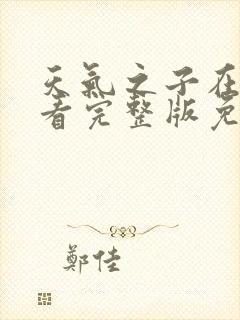 天氣之子在
看完整版免
鄭佳